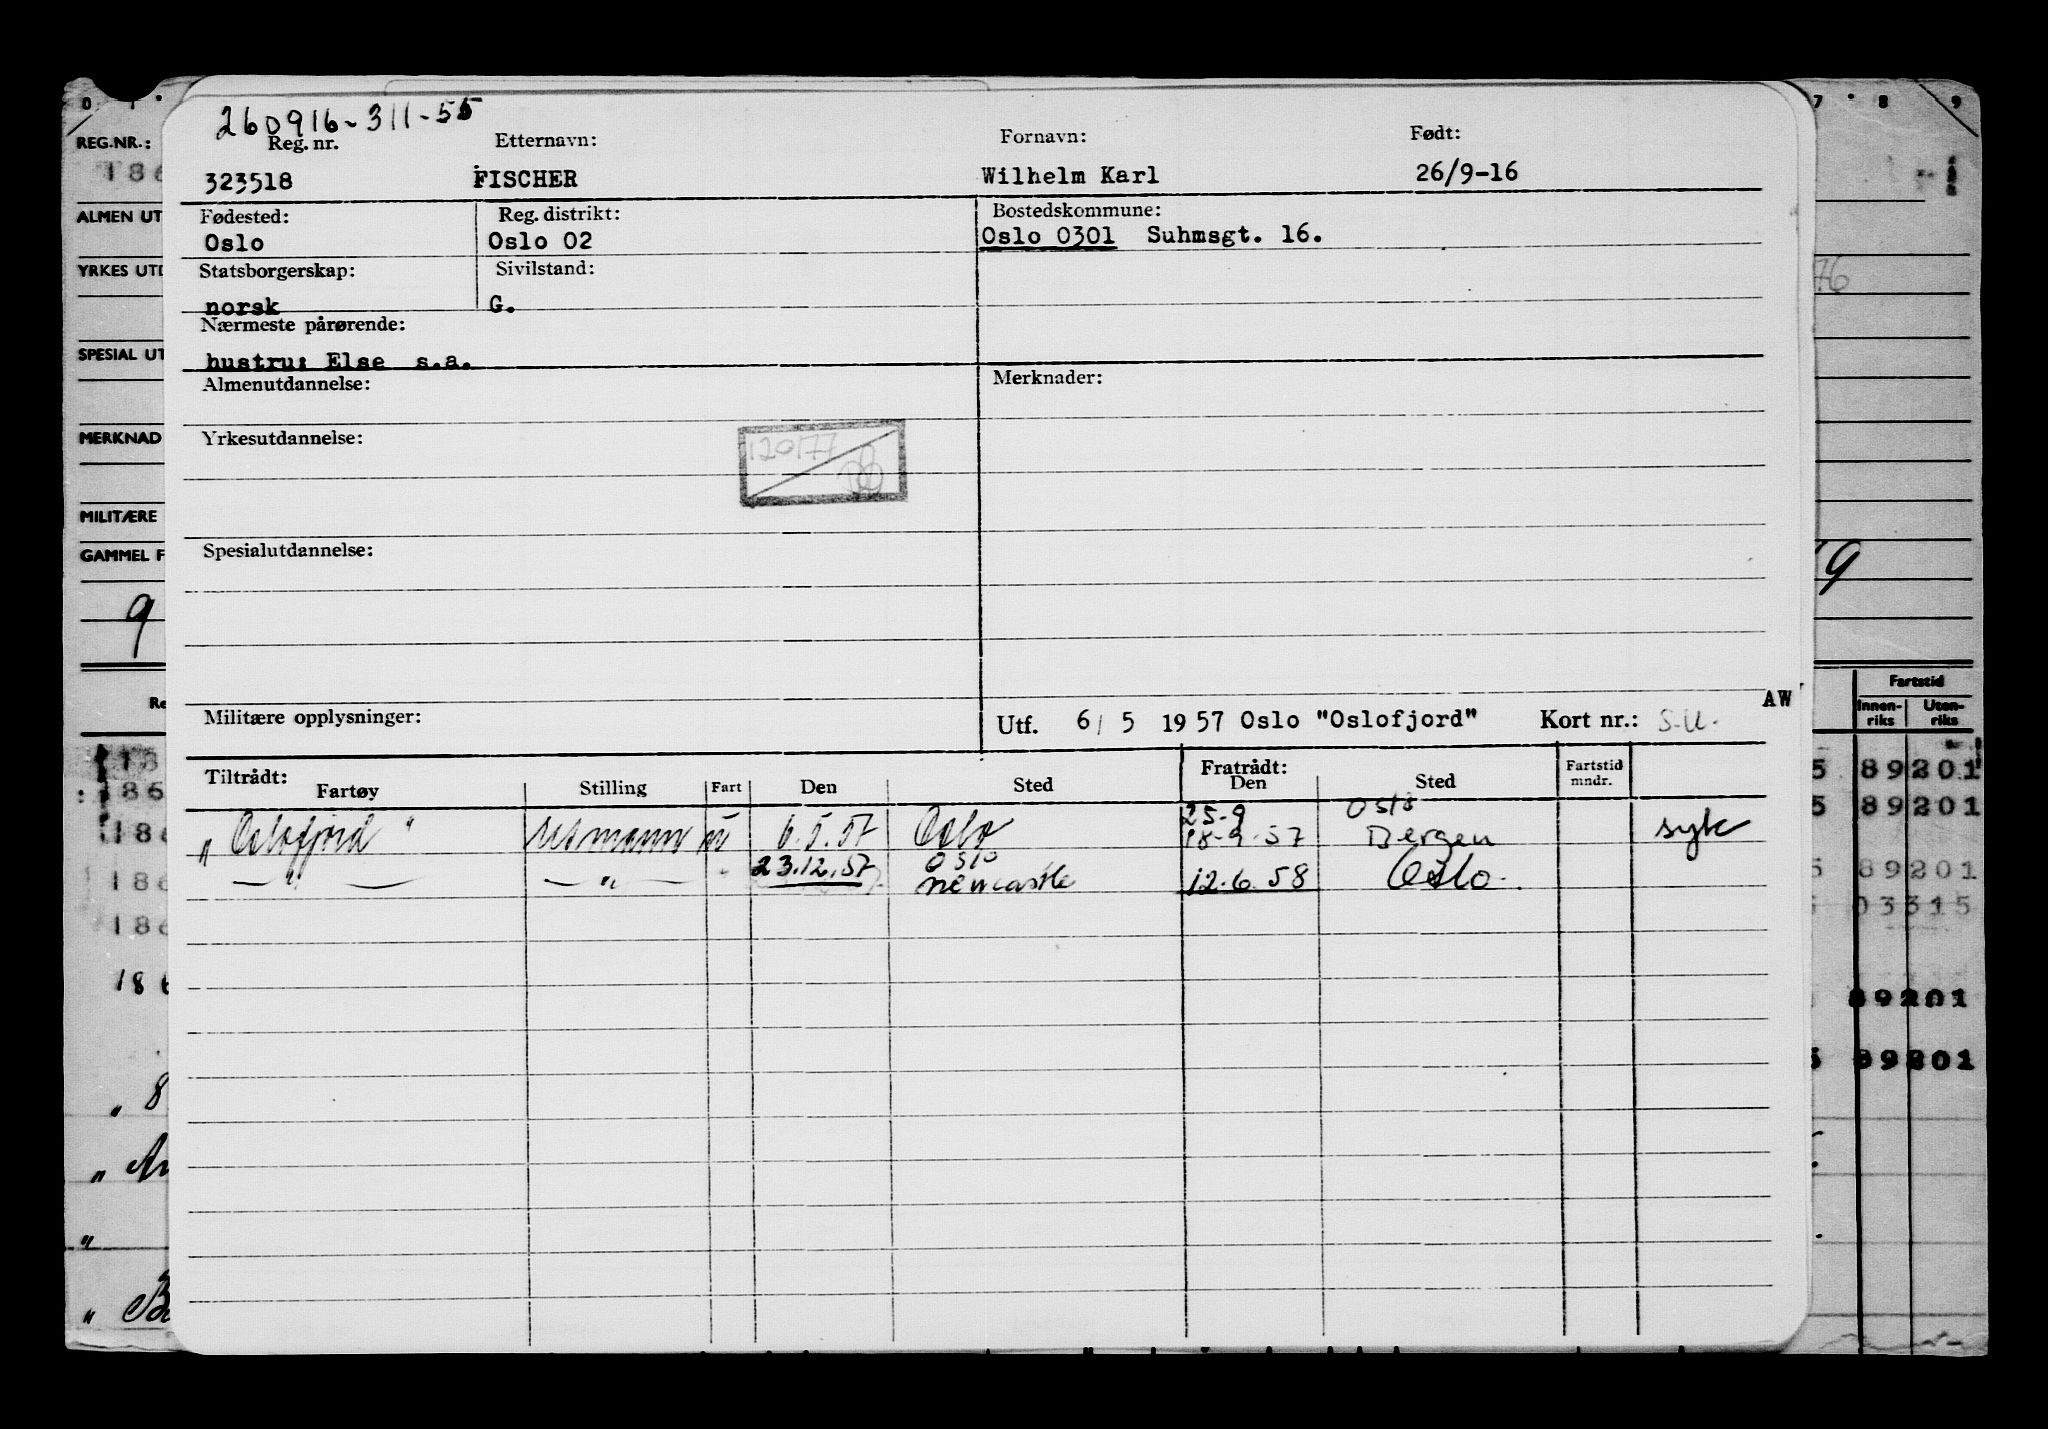 260916-311-55
Reg. nr. Etternavn: Fornavn: Født:
323518 FISCHER Wilhelm Karl 26/9-16
Fødested: Reg. distrikt: Bostedskommune:
Oslo Oslo 02 Oslo 0301 Suhmsgt. 16.
Statsborgerskap: Sivilstand:
norsk G.
Nærmeste pårørende:
hustru: Else s.a.
Almenutdannelse: Merknader:
Yrkesutdannelse:
120177
Spesialutdannelse:
AW
Militære opplysninger: Utf. 6/ 5 1957 Oslo "Oslofjord" Kort nr.: S.U.
Tiltrådt: Fratrådt: Fartstid
Fartøy Stilling Fart Den Sted Den Sted mndr.
25-9 Oslo
"Oslofjord" U 6.5.57 Oslo 18-9-57 Bergen syk
23.12.57 Oslo
" " Newcastle 12.6.58 Oslo.
0 1
REG.NR.:
186
ALMEN UT
YRKES UTD
SPESIAL UT
MERKNAD
MILITÆRE
GAMMEL F
9
Re
186
186
186
186
186
" 8
" An
"
"
7 8 9
76
9
Fartstid
Innen-riks Uten-riks
5 89201
5 89201
5 89201
03315
89201
5 89201